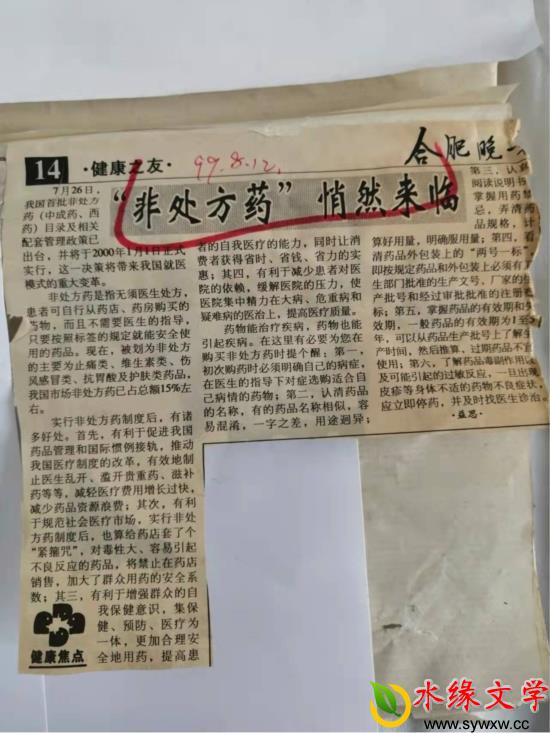 14
·健康之友·
99.8.12.
合肥晚
“非处方药”悄然来临
7月26日,
我国首批非处方
药(中成药、西
药)目录及相关
配套管理政策已
出台,并将于2000年1月1日正式
实行,这一决策将带来我国就医
模式的重大变革。
非处方药是指无须医生处方,
患者可自行从药店、药房购买的
药物,而且不需要医生的指导,
只要按照标签的规定就能安全使
用的药品。现在,被划为非处方
的主要为止痛类、维生素类、伤
风感冒类、抗胃酸及护肤类药品,
我国市场非处方药已占总额15%左
右。
实行非处方药制度后,有诸
多好处。首先,有利于促进我国
药品管理和国际惯例接轨,推动
我国医疗制度的改革,有效地制
止医生乱开、滥开贵重药、滋补
药等等,减轻医疗费用增长过快,
减少药品资源浪费;其次,有利
于规范社会医疗市场,实行非处
方药制度后,也算给药店套了个
“紧箍咒”,对毒性大、容易引起
不良反应的药品,将禁止在药店
销售,加大了群众用药的安全系
数;其三,有利于增强群众的自
我保健意识,集保
健、预防、医疗为
一体,更加合理安
全地用药,提高患
健康焦点
者的自我医疗的能力,同时让消
费者获得省时、省钱、省力的实
惠;其四,有利于减少患者对医
院的依赖,缓解医院的压力,使
医院集中精力在大病、危重病和
疑难病的医治上,提高医疗质量。
药物能治疗疾病,药物也能
引起疾病。在这里有必要为您在
购买非处方药时提个醒:第一,
初次购药时必须明确自己的病症,
在医生的指导下对症选购适合自
己病情的药物;第二,认清药品
的名称,有的药品名称相似,容
易混淆,一字之差,用途迥异;
第三,认真
阅读说明书
掌握用药禁
忌,弄清药
品规格,计
算好用量,明确服用量;第四,看
清药品外包装上的“两号一标”,
即按规定药品和外包装上必须有卫
生部门批准的生产文号,厂家的生
产批号和经过审批批准的注册商
标;第五,掌握药品的有效期和失
效期,一般药品的有效期为1至
年,可以从药品生产批号上了解生
产时间,然后推算,过期药品不宜
使用;第六,了解药品毒副作用以
及可能引起的过敏反应,一旦出现
皮疹等身体不适的药物不良症状,
应立即停药,并及时找医生诊治。
·益思·
水缘文学
www.sywxw.cc